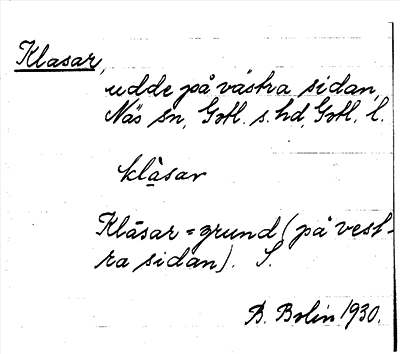 Klasar,
udde på västra sidan,
Näs sn, Gotl. s. hd, Gotl. l.
klạ̀sar
Klāsar = grund (på vest-
ra sidan). S.
B. Bolin 1930.